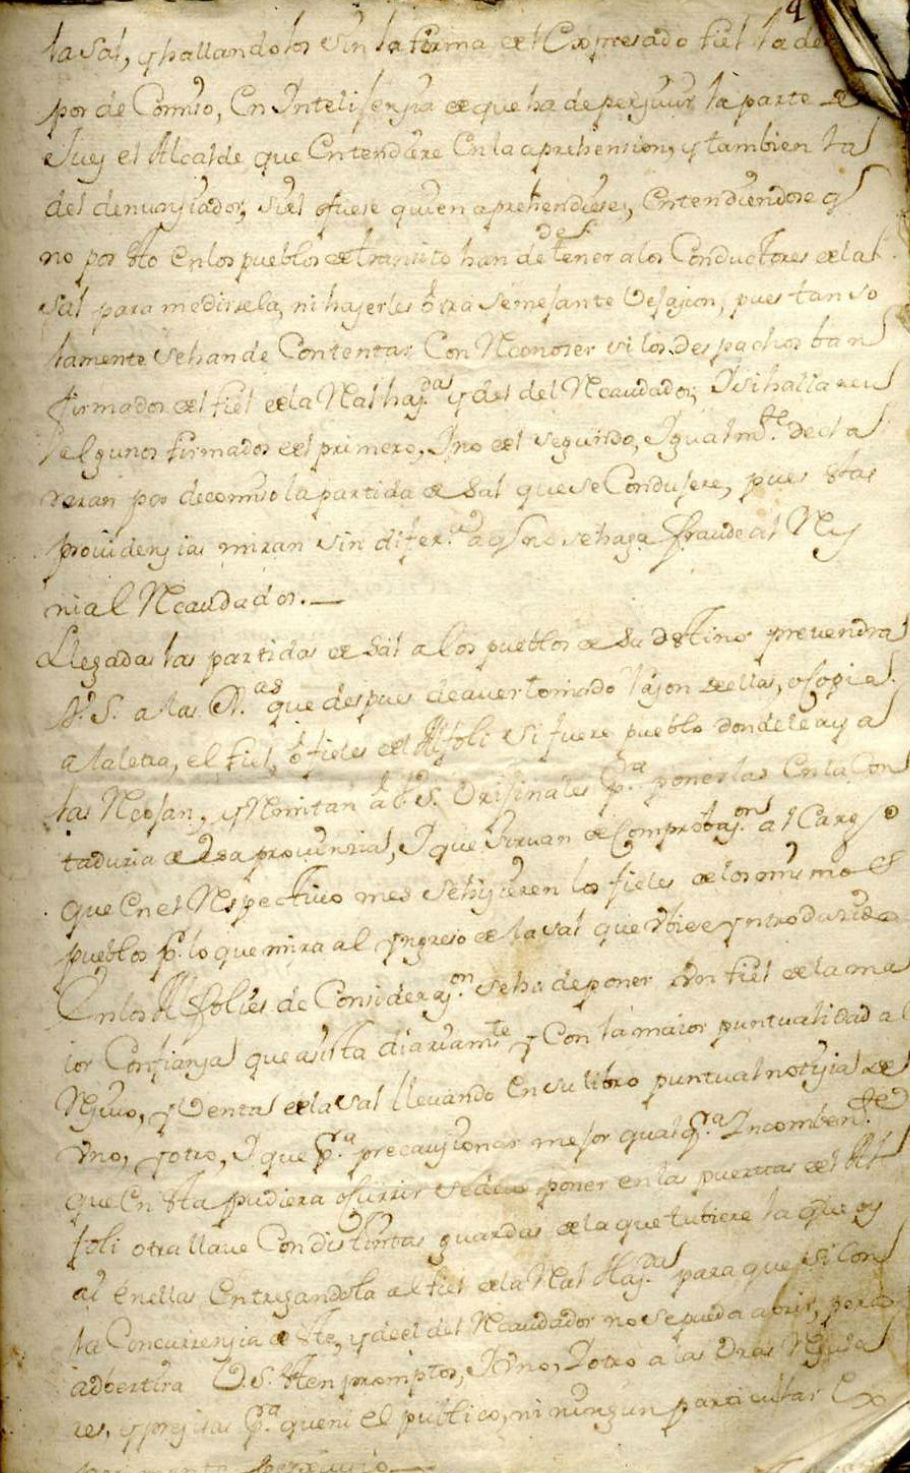 4
la sal, y hallandolos sin la firma del Expresado fiel la
por de Comiso, En Intelisensia de que ha de persivir la parte de
Jues el Alcalde que Entendiere En la aprehension, y tambien la
del denunsiador, si el fuese quien aprehendiese, Entendiendose q
no por sto En los pueblos de transito han de detener a los Conductores de la
sal para medirsela, ni haserles otra semejante Vejasion, pues tan so
lamente se han de Contentar Con Reconoser si los despachos ban
firmados del fiel de la Real hasda. y del del Recaudador, I si hallaren
algunos firmados del primero, I no del segundo, Igualmte. decla
raran por decomiso la partida de sal que se Condusere, pues stas
providensias miran sin difera. a q no se haga fraude al Rey
ni al Recaudador.—
Llegadas las partidas de sal a los pueblos de su destino prevendra
V. S. a las que despues de aver tomado rason de ellas, o Copia
a la letra, el fiel, o fieles del Alfoli si fuere pueblo donde le aya
las Recojan, y Remitan a V. S. Orijinales pa. ponerlas En la Con
taduria de sa provinsia, I que sirvan de Comprobason. al Cargo
que En el Respectivo mes se hisieren los fieles de los mismos
pueblos pr. lo que mira al yngreso de la sal que Vbiese yntrodusido
En los Alfolies de Considerason. se ha de poner Vn fiel de la ma
ior Confiansa que asista diariamte. y Con la maior puntualidad al
Resivo, y Venta de la sal llevando En su libro puntual notisia de
Vno, y otro, I que pa. precausionar mejor qualqra. Incombente.
que En sta pudiera ofurir se poner en las puertas del Al
foli otra llave Con distintas guardas de la que tubiere la que oy
ai En ellas Entregandola al fiel de la Real Hasda. para que si Con
la Concurrensia de ste, y de el del Recaudador no se pueda abrir, pero
adbertira V. S. sten promptos, I Vno, I otro a las Oras Regula
res, y presisas pa. que ni el publico, ni ningun particular Ex
perimente perjuicio—